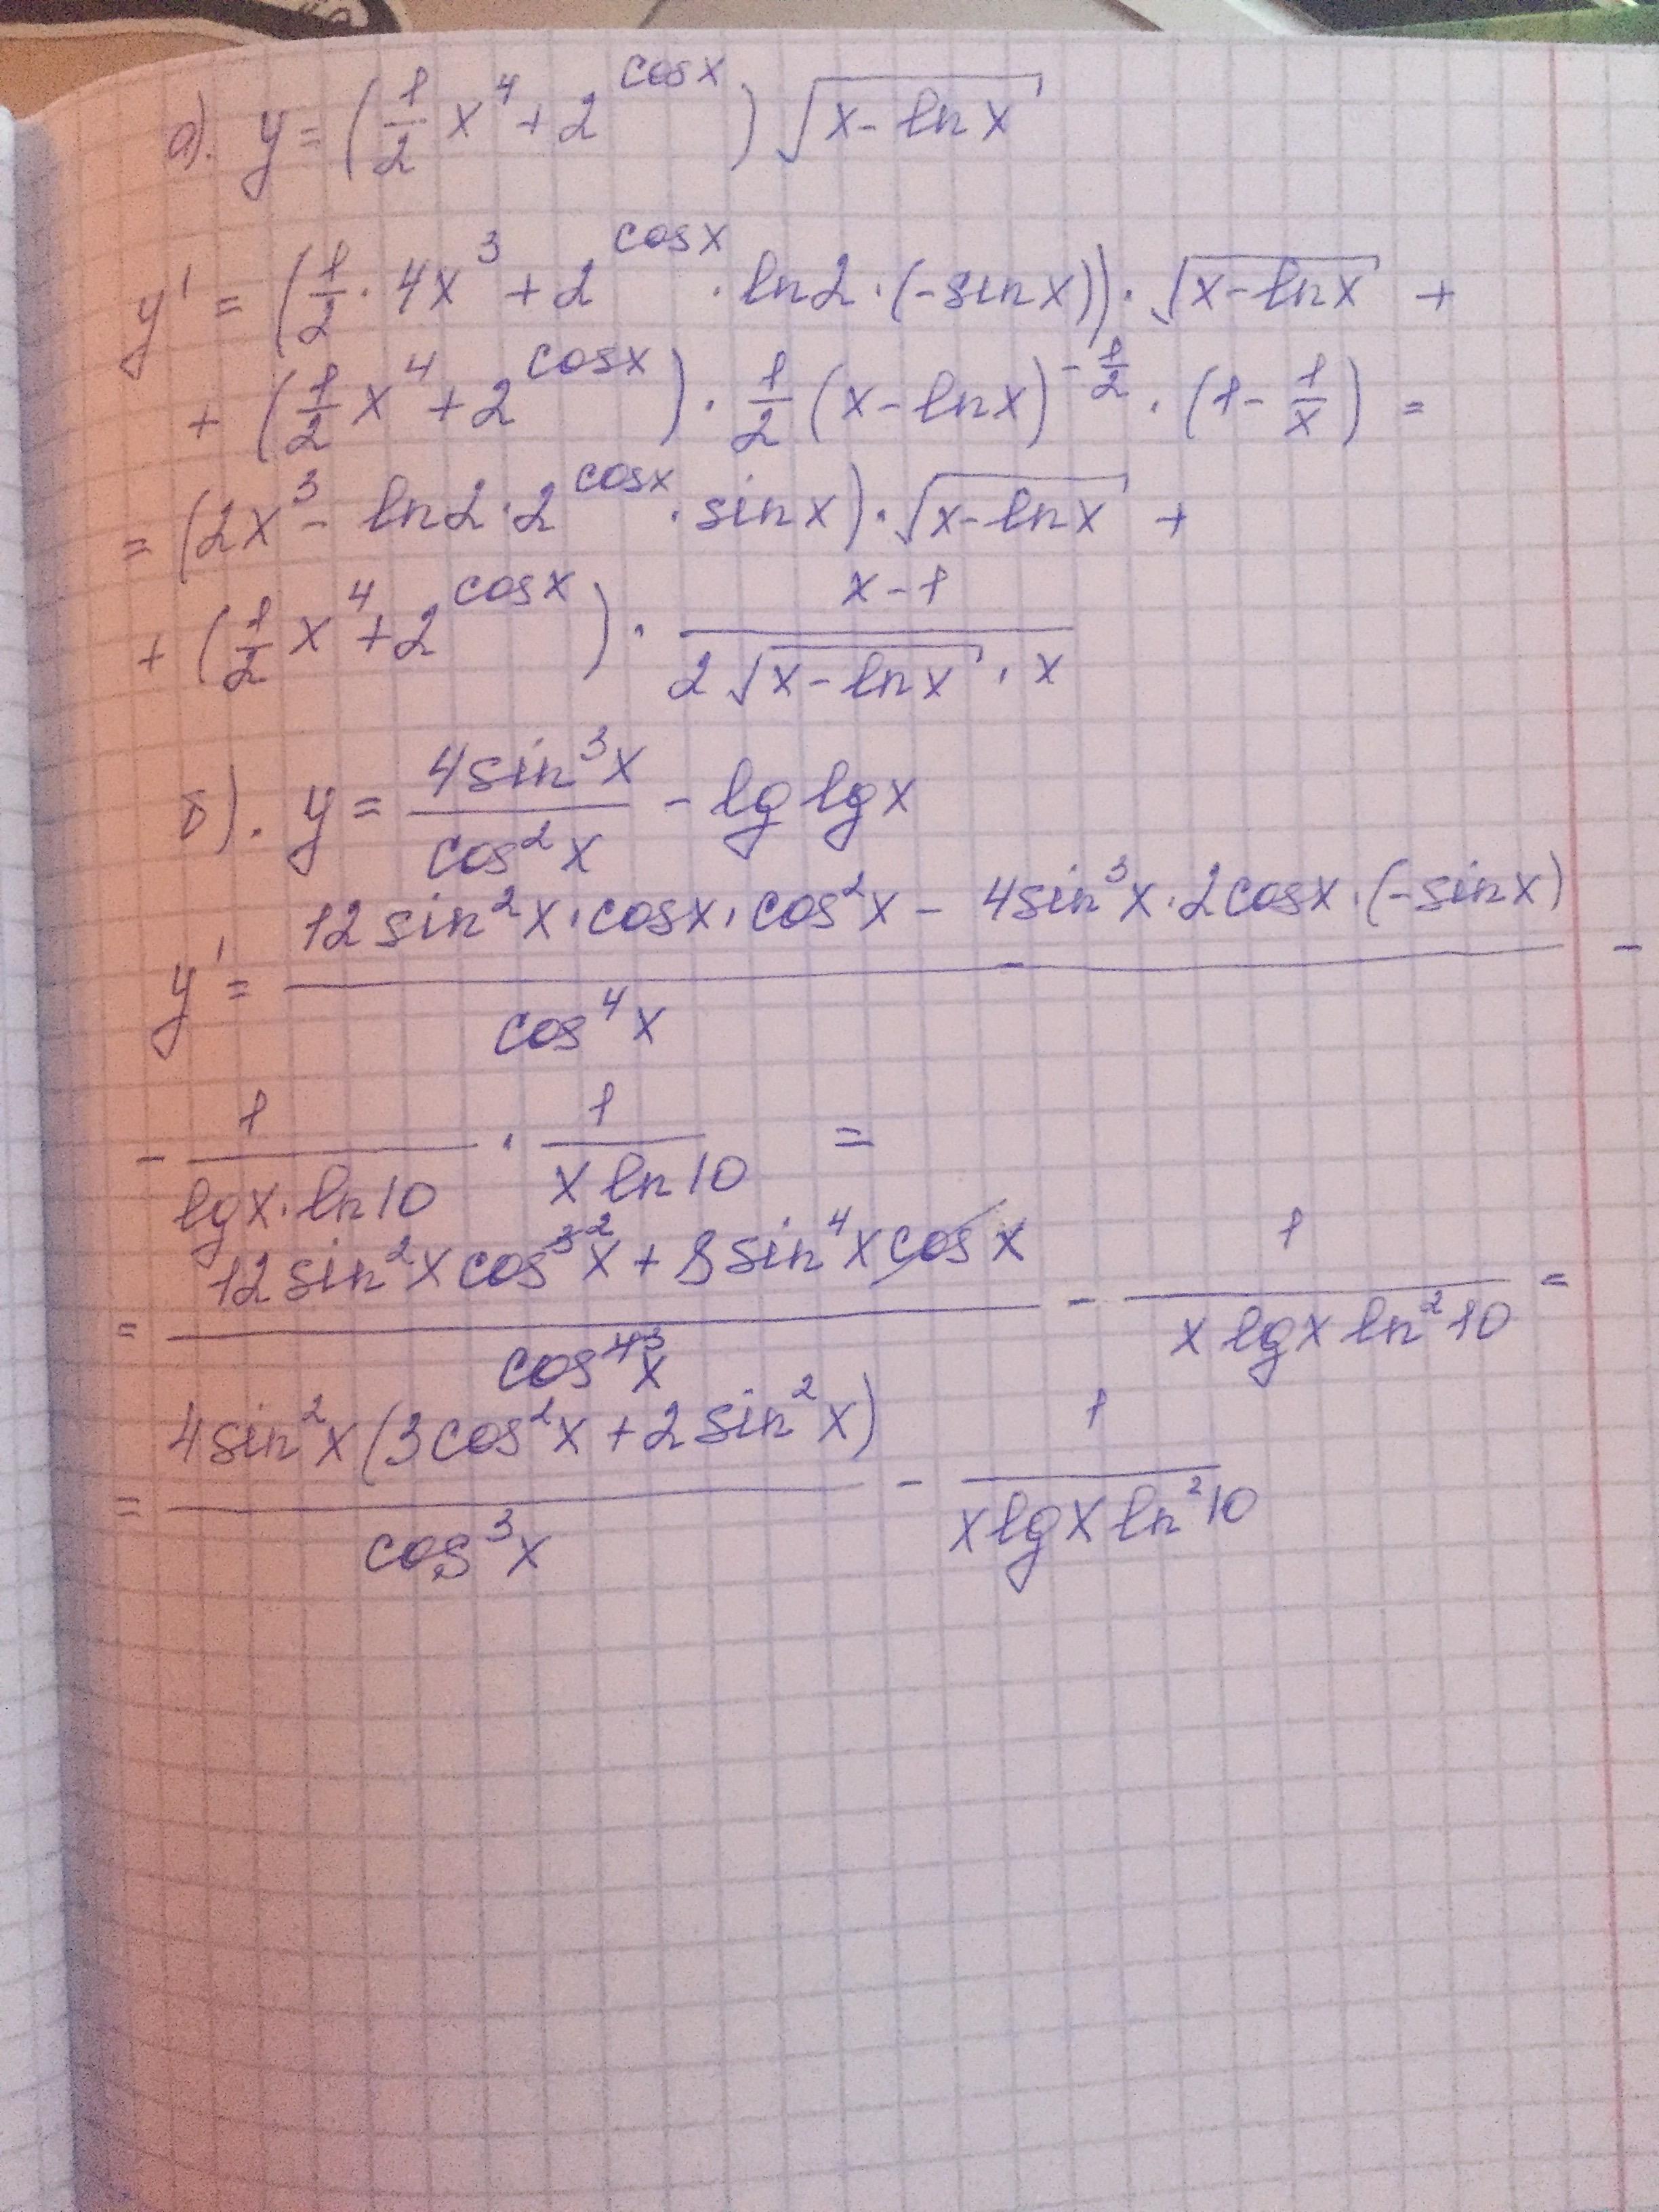 а). y = (1/2 x⁴ + 2^cosx) √(x - ln x)
y' = (1/2 · 4x³ + 2^cosx · ln2 · (-sinx)) · √(x-lnx) +
+ (1/2 x⁴ + 2^cosx) · 1/2 (x-lnx)^(-1/2) · (1 - 1/x) =
= (2x³ - ln2 · 2^cosx · sinx) · √(x-lnx) +
+ (1/2 x⁴ + 2^cosx) · (x-1)/(2√(x-lnx) · x)
б). y = 4sin³x/cos²x - lg lgx
y' = (12 sin²x · cosx · cos²x - 4sin³x · 2cosx · (-sinx))/cos⁴x -
- 1/(lgx · ln10) · 1/(x ln10) =
= (12sin²x cos³²x + 8sin⁴x cosx)/cos⁴³x - 1/(x lgx ln²10) =
= 4sin²x(3cos²x + 2sin²x)/cos³x - 1/(xlgx ln²10)